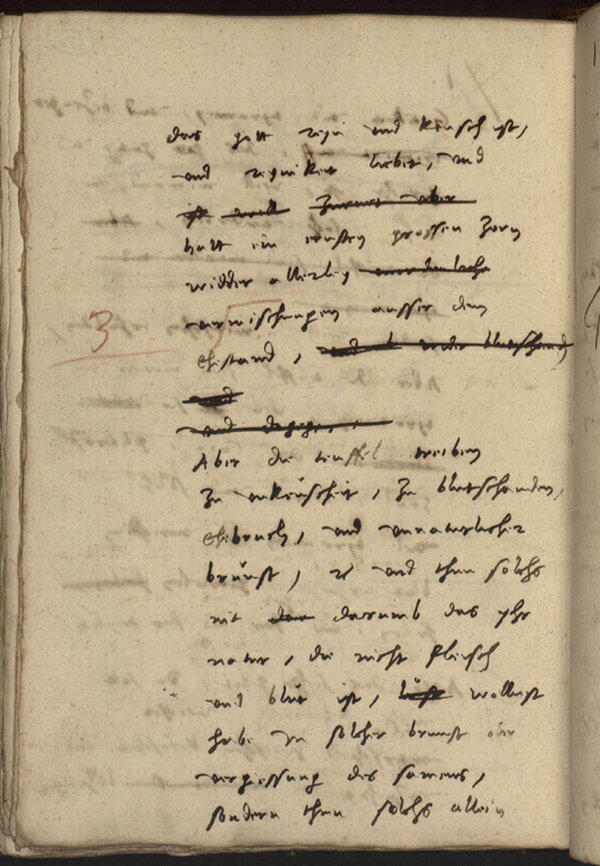 das gott reyn und keusch ist,
und reynikeit liebet, und
ist weil zurnet aber
hatt ein ernsten grossen zorn
widder allerley
vermischungen ausser dem
3
Ehestand, und
und
und dagegen,
Aber die teuffel treiben
zu unkeuscheit, zu blutschanden,
Ehebruch, und unnaturlicher
brunst, und thun solchs
nit darumb das yhr
natur, die nicht fleisch
und blut ist, lust wollust
habe yn solcher brunst oder
vergiessung des samens,
sondern thun solchs allein